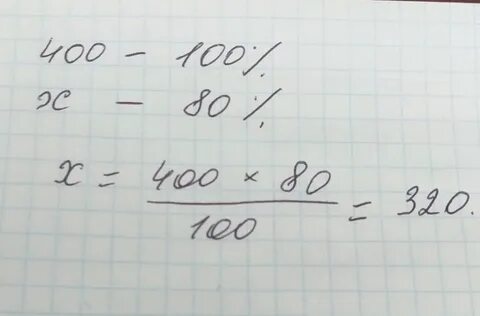 400 – 100%
x – 80%
x = 400 × 80 / 100 = 320.